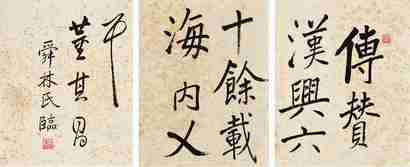 傳贊
漢興六
十餘載
海内乂
董其昌
舜林氏臨